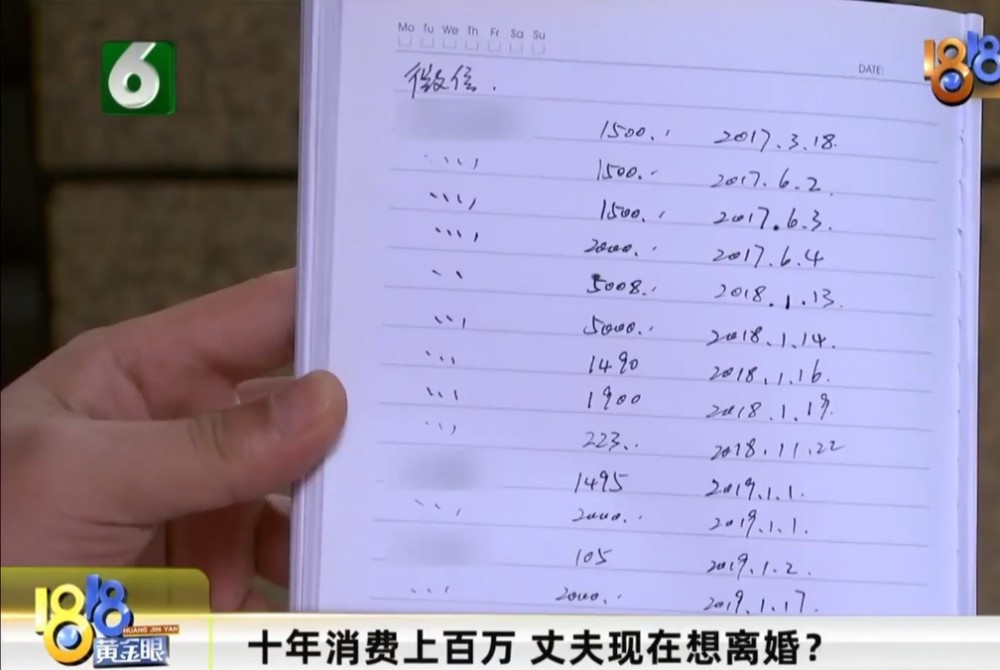 Mo Tu We Th Fr Sa Su
DATE:
6
1818
微信.
1500. 2017.3.18.
1500. 2017.6.2.
1500. 2017.6.3.
2000. 2017.6.4
5008. 2018.1.13.
5000. 2018.1.14.
1490 2018.1.16.
1900 2018.1.19.
223. 2018.11.22
1495 2019.1.1.
2000. 2019.1.1.
105 2019.1.2.
2000. 2019.1.17.
1818
HUANG JIN YAN
黄金眼
十年消费上百万 丈夫现在想离婚?